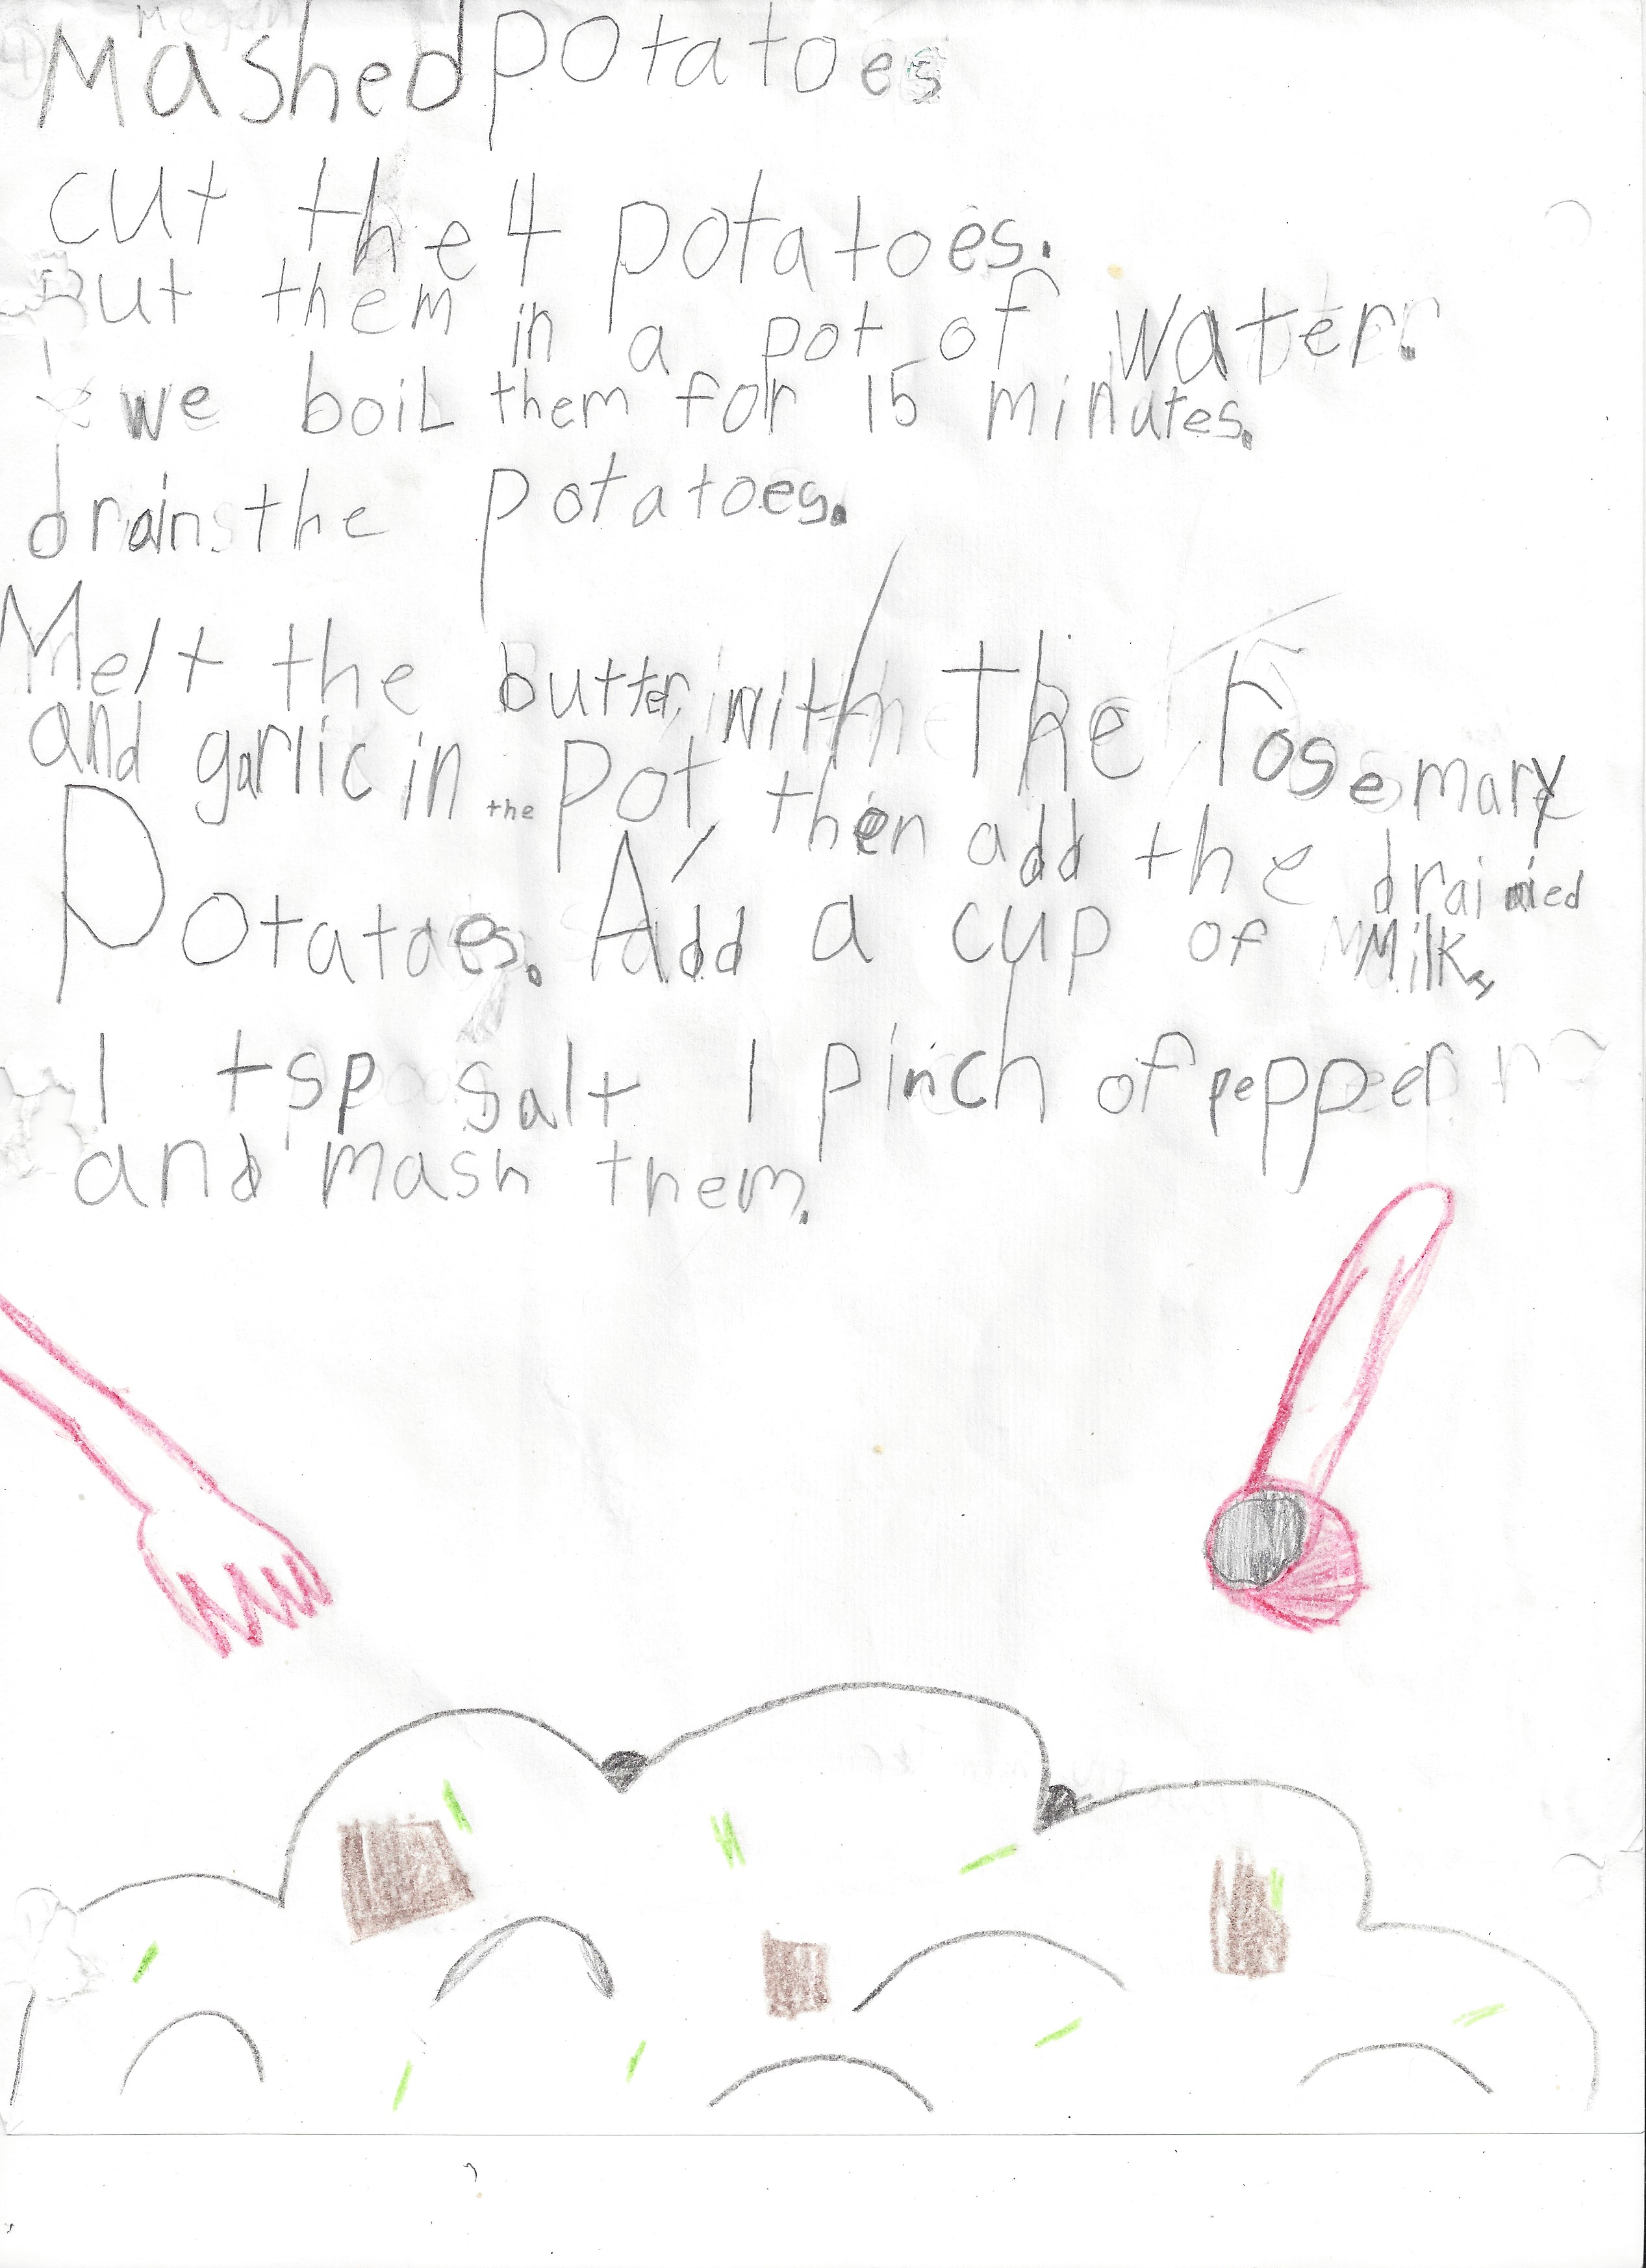 Megan
Mashed potatoes
cut the 4 potatoes.
Put them in a pot of water.
we boil them for 15 minutes.
drain the potatoes.
Melt the butter with the rosemary
and garlic in the pot, then add the drained
Potatoes. Add a cup of Milk,
1 tsp salt 1 pinch of pepper
and mash them.